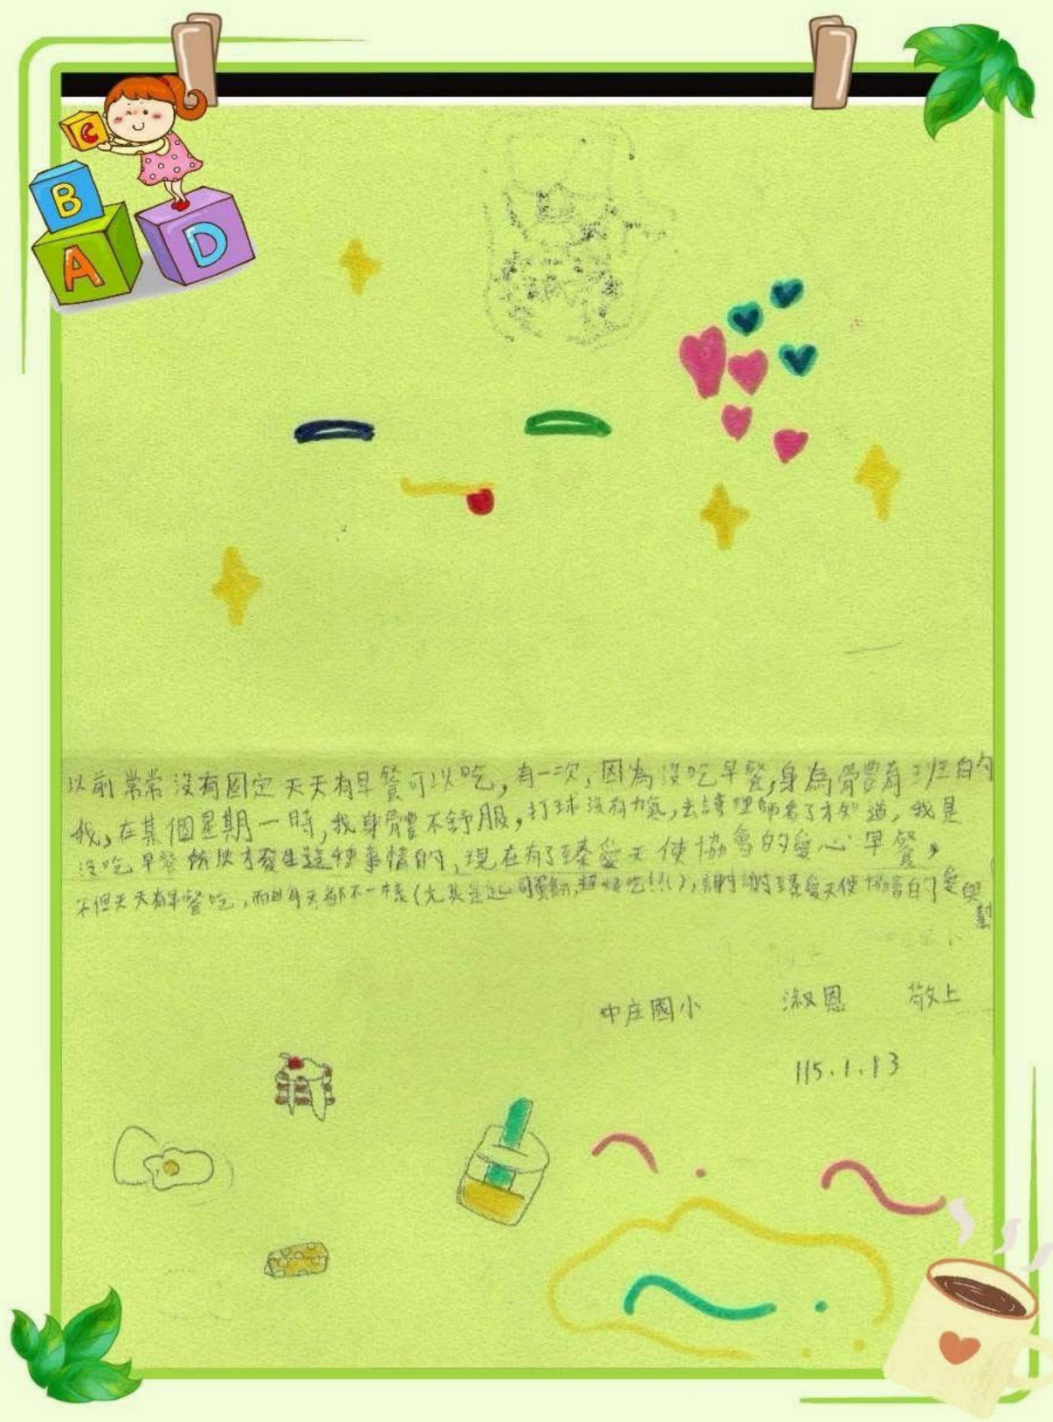 C
B
A
D
以前常常沒有固定天天有早餐可以吃，有一次，因為沒吃早餐，身為體育班的
我，在某個星期一時，我身體不舒服，打球沒有力氣，去請護理師看了才知道，我是
沒吃早餐所以才發生這種事情的，現在有了臻愛天使協會的愛心早餐，
不但天天有早餐吃，而且每天都不一樣(尤其是起司蛋餅，超好吃!!!)，謝謝臻愛天使協會的愛與
幫
中庄國小 淑恩 敬上
115.1.13